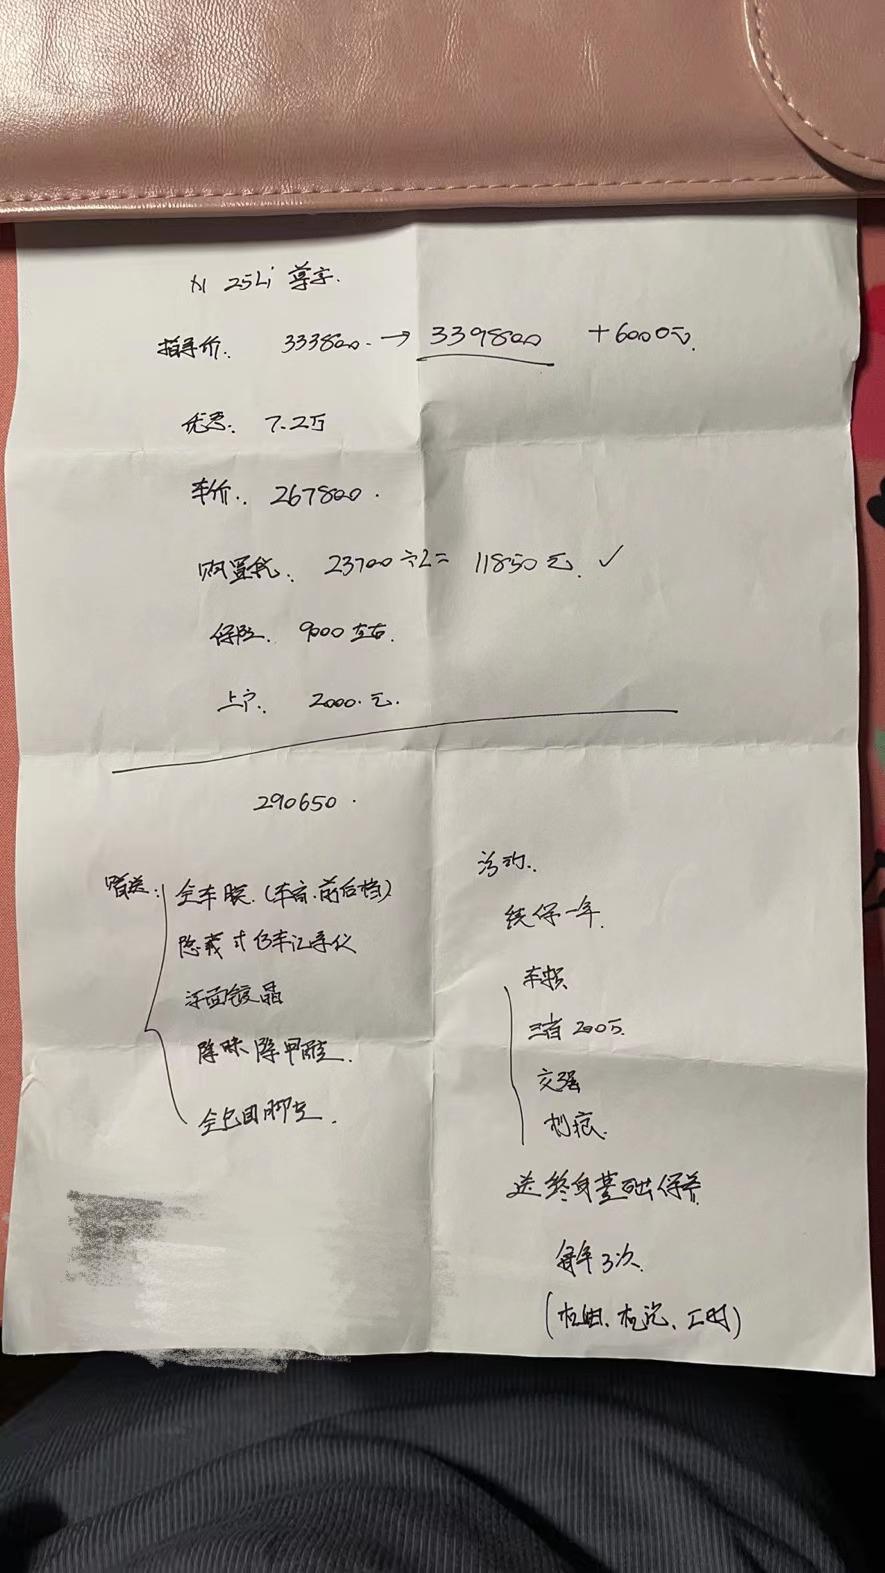 X1 25Li 尊享.
指导价. 333800. → 339800 +6000元.
优惠: 7.2万
车价: 267800.
购置税. 23700÷2= 11850元. ✓
保险. 9000左右.
上户. 2000.元.
290650.
赠送:
全车膜.(车窗.前后档)
隐藏式行车记录仪
漆面镀晶
除味除甲醛.
全包围脚垫.
活动.
续保一年.
车损
三者200万.
交强
划痕.
送终身基础保养
每年3次
(机油、机滤、工时)